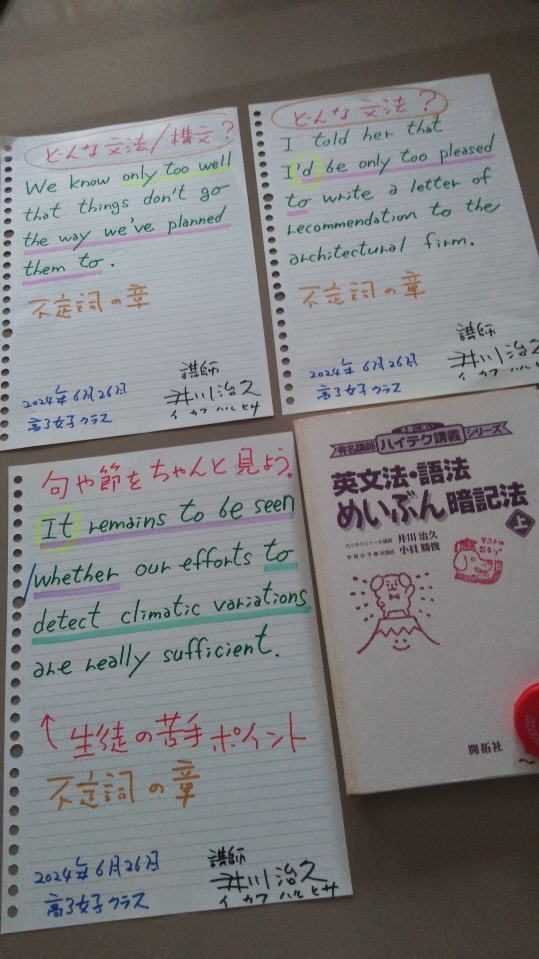 どんな文法/構文?
We know only too well
that things don't go
the way we've planned
them to.
不定詞の章
2024年6月26日
高3女子クラス
講師
井川治久
イカワハルヒサ
どんな文法?
I told her that
I'd be only too pleased
to write a letter of
recommendation to the
architectural firm.
不定詞の章
2024年6月26日
高3女子クラス
講師
井川治久
イカワハルヒサ
句や節をちゃんと見よう。
It remains to be seen
whether our efforts to
detect climatic variations
are really sufficient.
↑生徒の苦手ポイント
不定詞の章
2024年6月26日
高3女子クラス
講師
井川治久
イカワハルヒサ
本番に強い
有名講師 ハイテク講義 シリーズ
英文法・語法
めいぶん暗記法
上
代々木ゼミナール講師 井川治久
小貝勝俊
テストに
出るゾ
開拓社